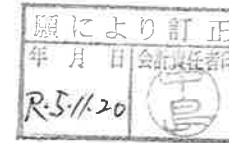 願により訂正
年月日 会計責任者印
R.5.11.20 中島